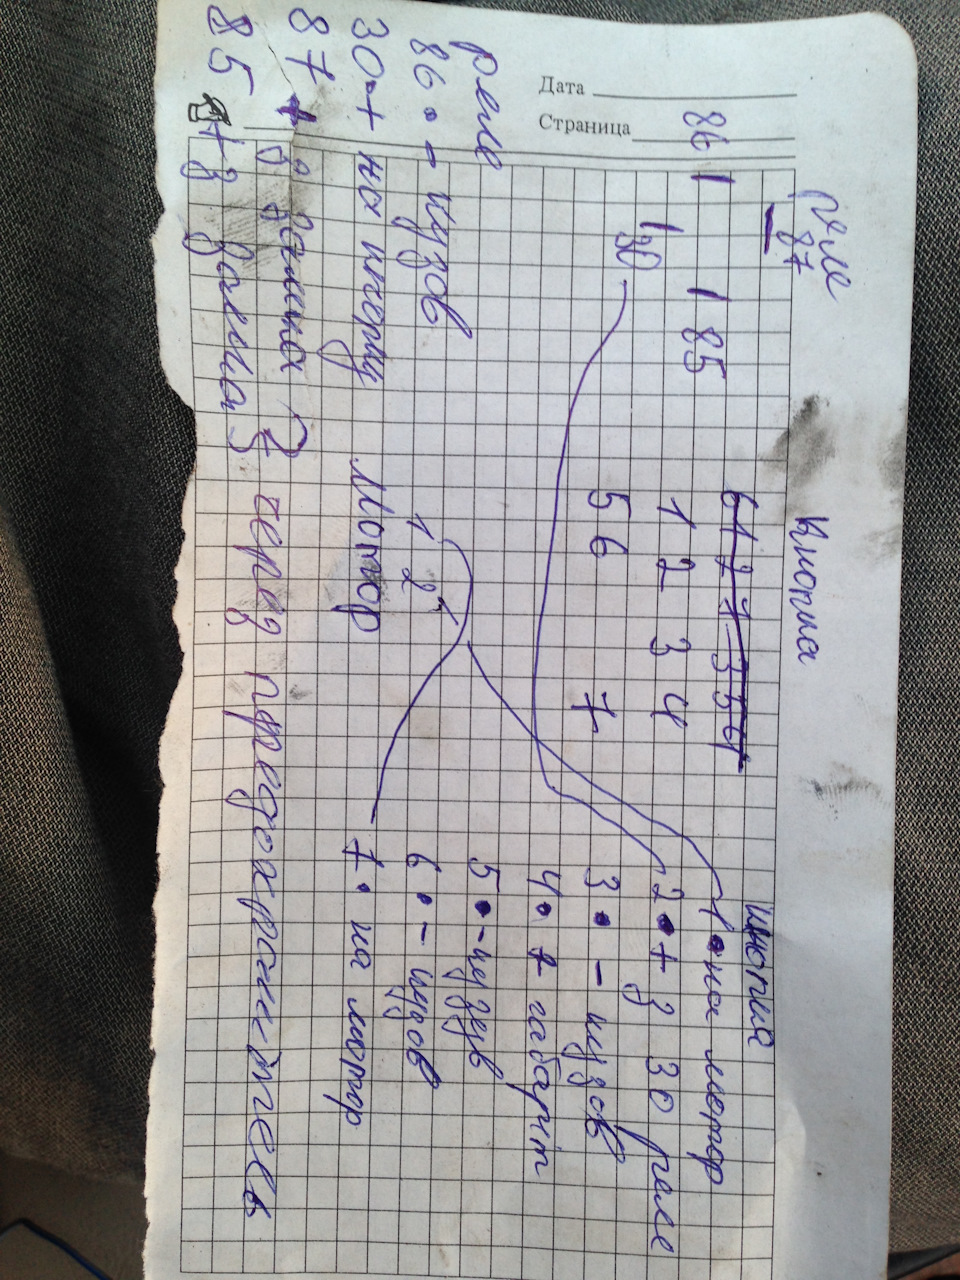 Дата
Страница
реле
87
86
85
30
кнопка
6 1 2 7 3 5 4
1 2 3 4
5 6
7
кнопка
1 • на мотор
2 • + з 30 реле
3 • - кузов
4 • + габарит
5 • - кузов
6 • - кузов
7 • на мотор
реле
86 • - кузов
30 • + на кнопку
87 + з замка
85 + з замка } через предохранитель
1 2
Мотор